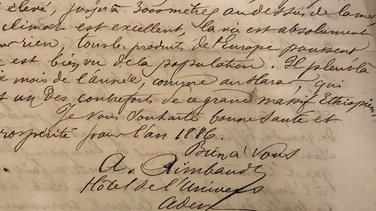 élevé, jusqu'à 3000 mètres au dessus de la mer
climat est excellent, la vie est absolument
rien, tous les produits de l'Europe poussent
est bien vu de la population. Il pleut là
mois de l'année, comme au Harar, qui
est un des contreforts de ce grand massif Ethiopien
Je vous souhaite bonne santé et
prospérité pour l'an 1886.
Bien à vous
A. Rimbaud
Hôtel de l'Univers
Aden